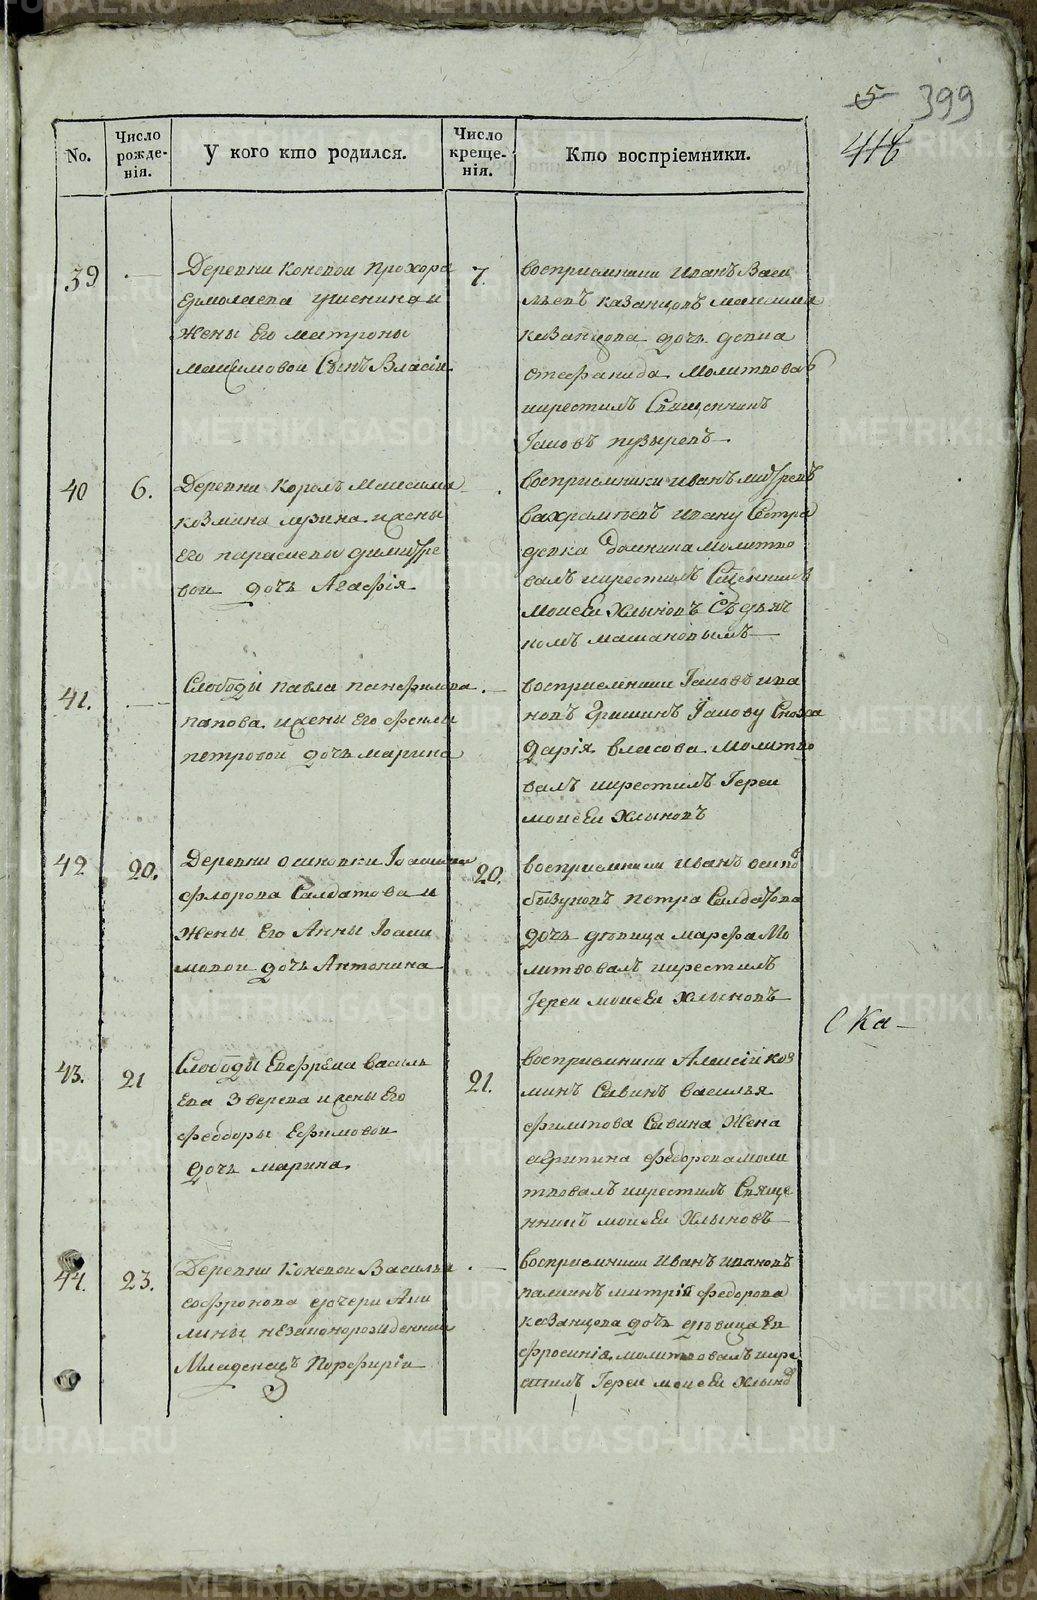 5 399
418
No.
Число рожде-нія.
У кого кто родился.
Число креще-нія.
Кто воспріемники.
39
Деревни Коневои Прохора
Ермолаева и
жены Его матроны
максимовои Сынъ Власіи
7.
восприемники Иванъ Васи
льевъ казанцовъ максима
казанцова дочь девка
стефанида молитвовалъ
икрестилъ Священникъ
Іаковъ пузыревъ
40
6.
Деревни Максима
козмина лузина ижены
Его параскевы димитре
вои дочь Агафія
восприемники иванъ митревъ
вахрамеевъ ивану Сестра
девка домнина молитво
валъ икрестилъ Сщенникъ
моисеи Хлыновъ Съ дьяч
комъ
41.
Слободы павла панфилова
папова ижены Его феклы
петровои дочь марина
восприемники Іаковъ ива
новъ Гришинъ Іакову Сноха
Дарія власова молитво
валъ икрестилъ Іереи
моисеи Хлыновъ
42
20.
Деревни осиновки Іоакима
флорова Салдатова и
жены Его Анны Іоаки
мовои дочь Антонина
20.
восприемники иванъ осипо
бызуновъ петра Салдатова
дочь девица марфа Мо
литвовалъ икрестилъ
Іереи моисеи Хлыновъ
С Ка-
43.
21
Слободы Евфрема василь
Ева Зверева ижены Его
феодоры Ефимовои
дочь марина
21.
восприемники Алексіи коз
минъ Савинъ василья
филипова Савина Жена
агрипина федорова моли
твовалъ икрестилъ Свяще
нникъ моисеи Хлыновъ
44.
23.
Деревни Коневои Василья
софронова дочери Аки
лины незаконорожденныи
Младенецъ Порфиріи
восприемники Иванъ ивановъ
митріи федорова
казанцова дочь девица Ев
фросинія молитвовалъ икре
стилъ Іереи моисеи Хлыно
METRIKI.GASO-URAL.RU